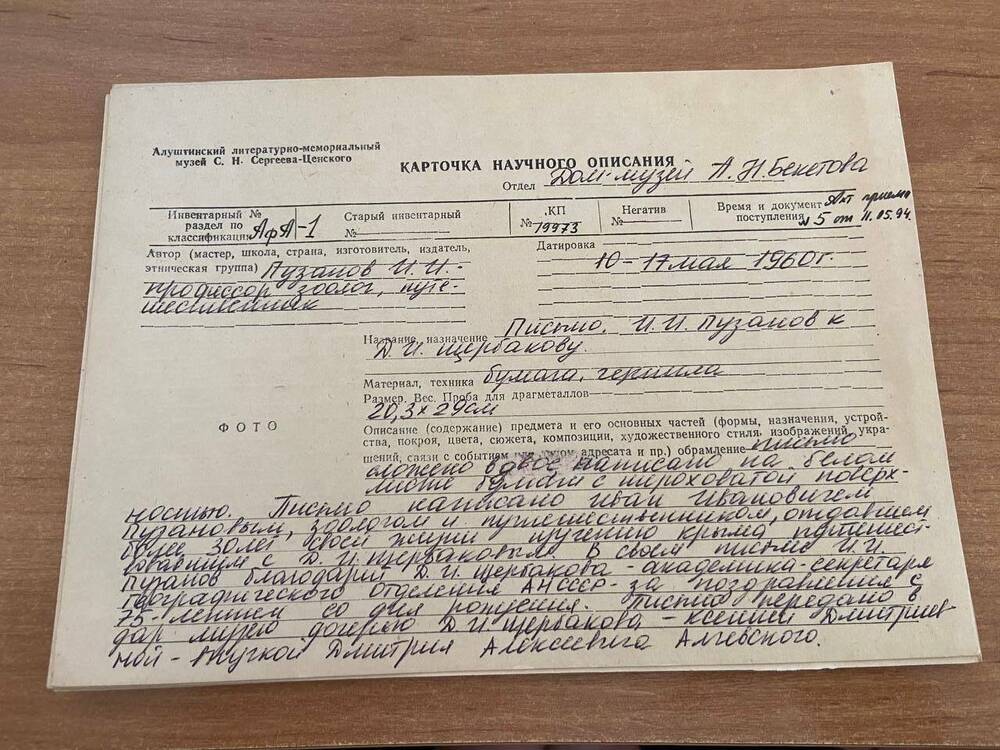 Алуштинский литературно-мемориальный
музей С. Н. Сергеева-Ценского
КАРТОЧКА НАУЧНОГО ОПИСАНИЯ
Отдел Дом-музей А.Н.Бекетова
Инвентарный №
раздел по
классификации АфА-1
Старый инвентарный
№
КП
№ 19973
Негатив
№
Время и документ Акт приема
поступления №5 от 11.05.94.
Автор (мастер, школа, страна, изготовитель, издатель,
этническая группа) Пузанов И.И. -
профессор зоолог, путе-
шественник
Датировка
10-17 мая 1960г.
Название, назначение Письмо. И.И Пузанов к
Д.И. Щербакову.
Материал, техника бумага, чернила
Размер. Вес. Проба для драгметаллов
20,3 х 29см
ФОТО
Описание (содержание) предмета и его основных частей (формы, назначения, устрой-
ства, покроя, цвета, сюжета, композиции, художественного стиля, изображений, укра-
шений, связи с событием адресата и пр.) обрамление письмо
сложено вдвое написано на белом
листе бумаги с шероховатой поверх-
ностью. Письмо написано Иван Ивановичем
Пузановым, зоологом и путешественником, отдавшем
более 30лет своей жизни изучению Крыма путешест-
вовавшим с Д.И Щербаковым. В своем письме И.И.
Пузанов благодарит Д.И Щербакова - академика-секретаря
географического отделения АНСССР за поздравления с
75-летием со дня рождения. Письмо передано в
дар музею дочерью Д.И Щербакова - Ксенией Дмитриев-
ной - внучкой Дмитрия Алексеевича Алчевского.